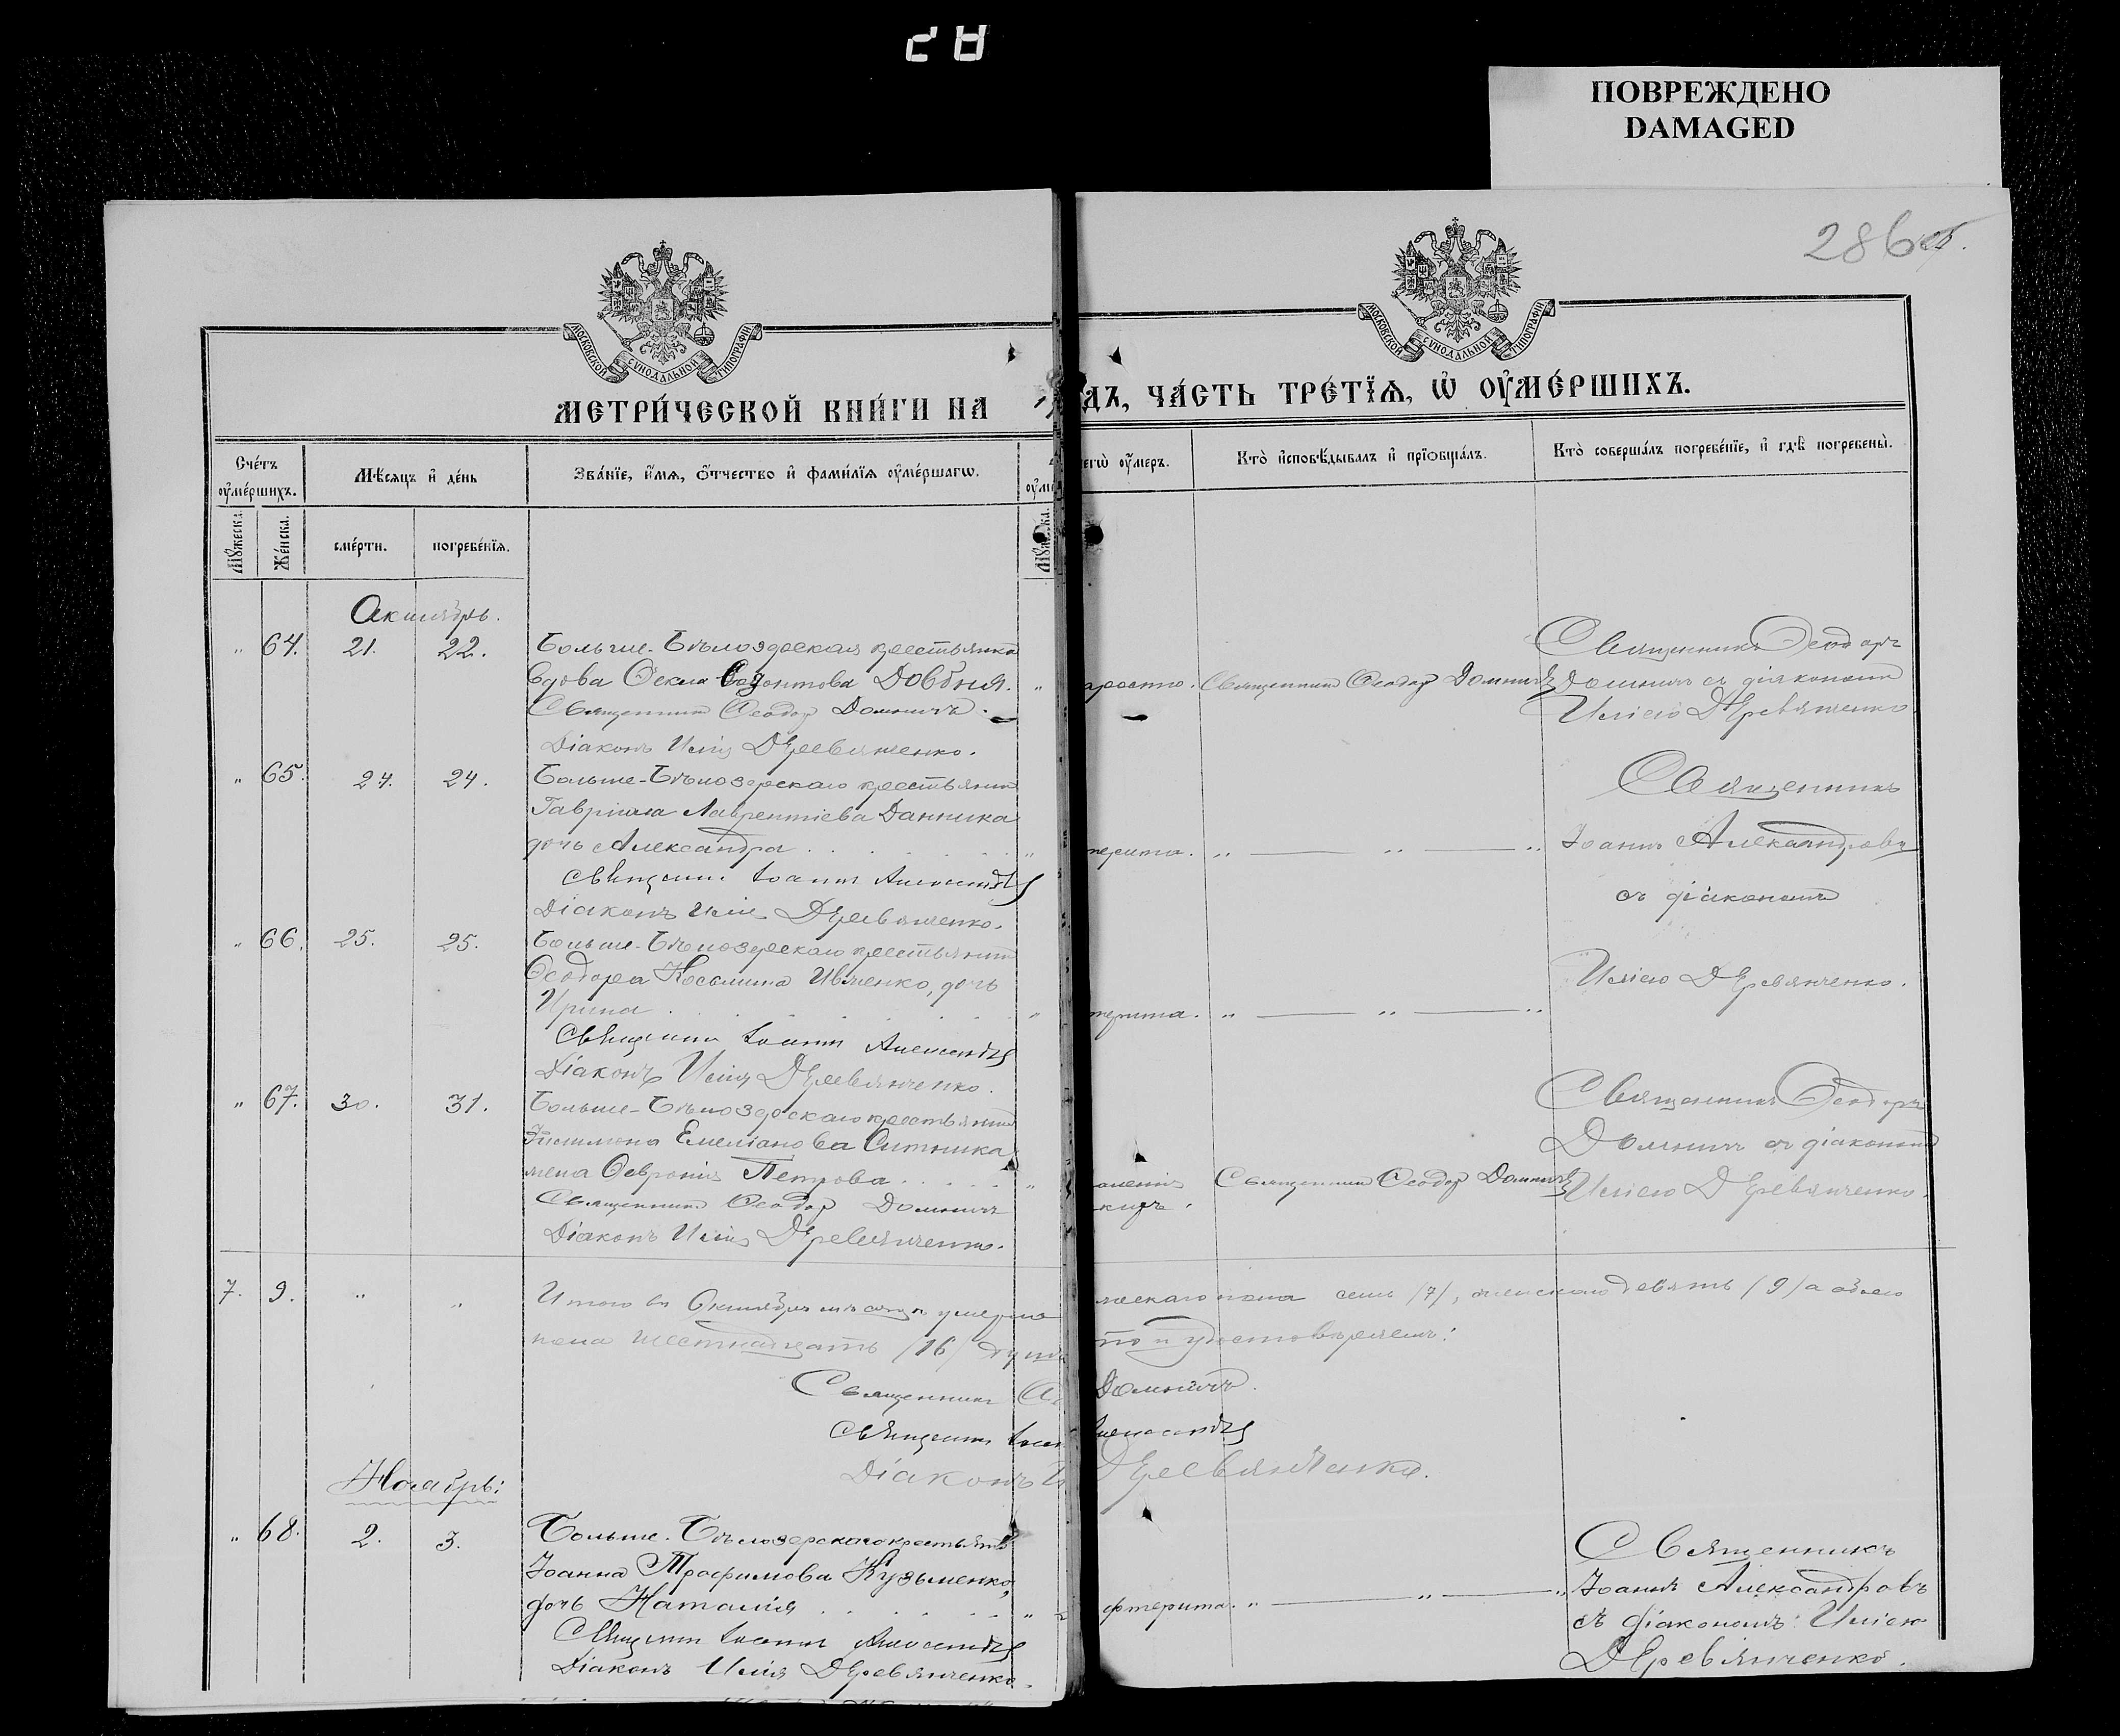 ПОВРЕЖДЕНО
DAMAGED
286 об.
МОСКОВСКОЙ СѴНОДАЛЬНОЙ ТИПОГРАФІИ
МОСКОВСКОЙ СѴНОДАЛЬНОЙ ТИПОГРАФІИ
МЕТРИ́ЧЕСКОЙ КНИ́ГИ НА
ДЪ, ЧА́СТЬ ТРЕ́ТЇѦ, Ѡ҆ ОУ҆МЕ́РШИХЪ.
Сче́тъ оу҆ме́ршихъ.
Мѣ́сяцъ и҆ де́нь
Зва́нїе, и҆́мѧ, ѻ҆́тчество и҆ фами́лїѧ оу҆ме́ршагѡ.
егѡ̀ оу҆́меръ.
Кто̀ и҆сповѣ́дывалъ и҆ прїѡбща́лъ.
Кто̀ соверша́лъ погребе́нїе, и҆ гдѣ̀ погребены̀.
Мꙋ́жеска.
Же́нска.
сме́рти.
погребе́нїѧ.
Октябрь.
" 64. 21. 22. Больше-Бѣлозерская крестьянка
вдова Ѳекла Созонтова Довбня. "
Священникъ Ѳеодоръ Домничъ.
Діаконъ Илія Деревянченко.
Священникъ Ѳеодоръ Домничъ
Священникъ Ѳеодоръ
Домничъ съ діакономъ
Иліею Деревянченко
" 65. 24. 24. Больше-Бѣлозерскаго крестьянина
Гавріила Лаврентіева Данника
дочь Александра
Священник Іоаннъ Александровъ
Діаконъ Илія Деревянченко.
терита. " — " — "
Священникъ
Іоаннъ Александровъ
съ діакономъ
Иліею Деревянченко.
" 66. 25. 25. Больше-Бѣлозерскаго крестьянина
Ѳеодора Косьмина Ивченко, дочь
Ирина
Священник Іоаннъ Александровъ
Діаконъ Илія Деревянченко.
терита. " — " — "
" 67. 30. 31. Больше-Бѣлозерскаго крестьянина
Емеліанова Ситника
жена Ѳевронія Петрова
Священникъ Ѳеодоръ Домничъ
Діаконъ Илія Деревянченко.
Священникъ Ѳеодоръ Домничъ
Священникъ Ѳеодоръ
Домничъ съ діакономъ
Иліею Деревянченко.
7. 9. " " Итого въ Октябрѣ мѣсяцѣ умерло
жескаго пола семь /7/, женскаго девять /9/ а обоего
пола шестнадцать /16/ душъ
Священникъ Домничъ.
Священник
Діаконъ Деревянченко.
Ноябрь:
" 68. 2. 3. Больше-Бѣлозерскаго крестьянина
Іоанна Трофимова Кузьменко,
дочь Наталія
Священник Іоаннъ Александровъ
Діаконъ Илія Деревянченко.
фтерита. " — " — "
Священникъ
Іоаннъ Александровъ
съ діакономъ: Иліею
Деревянченко.